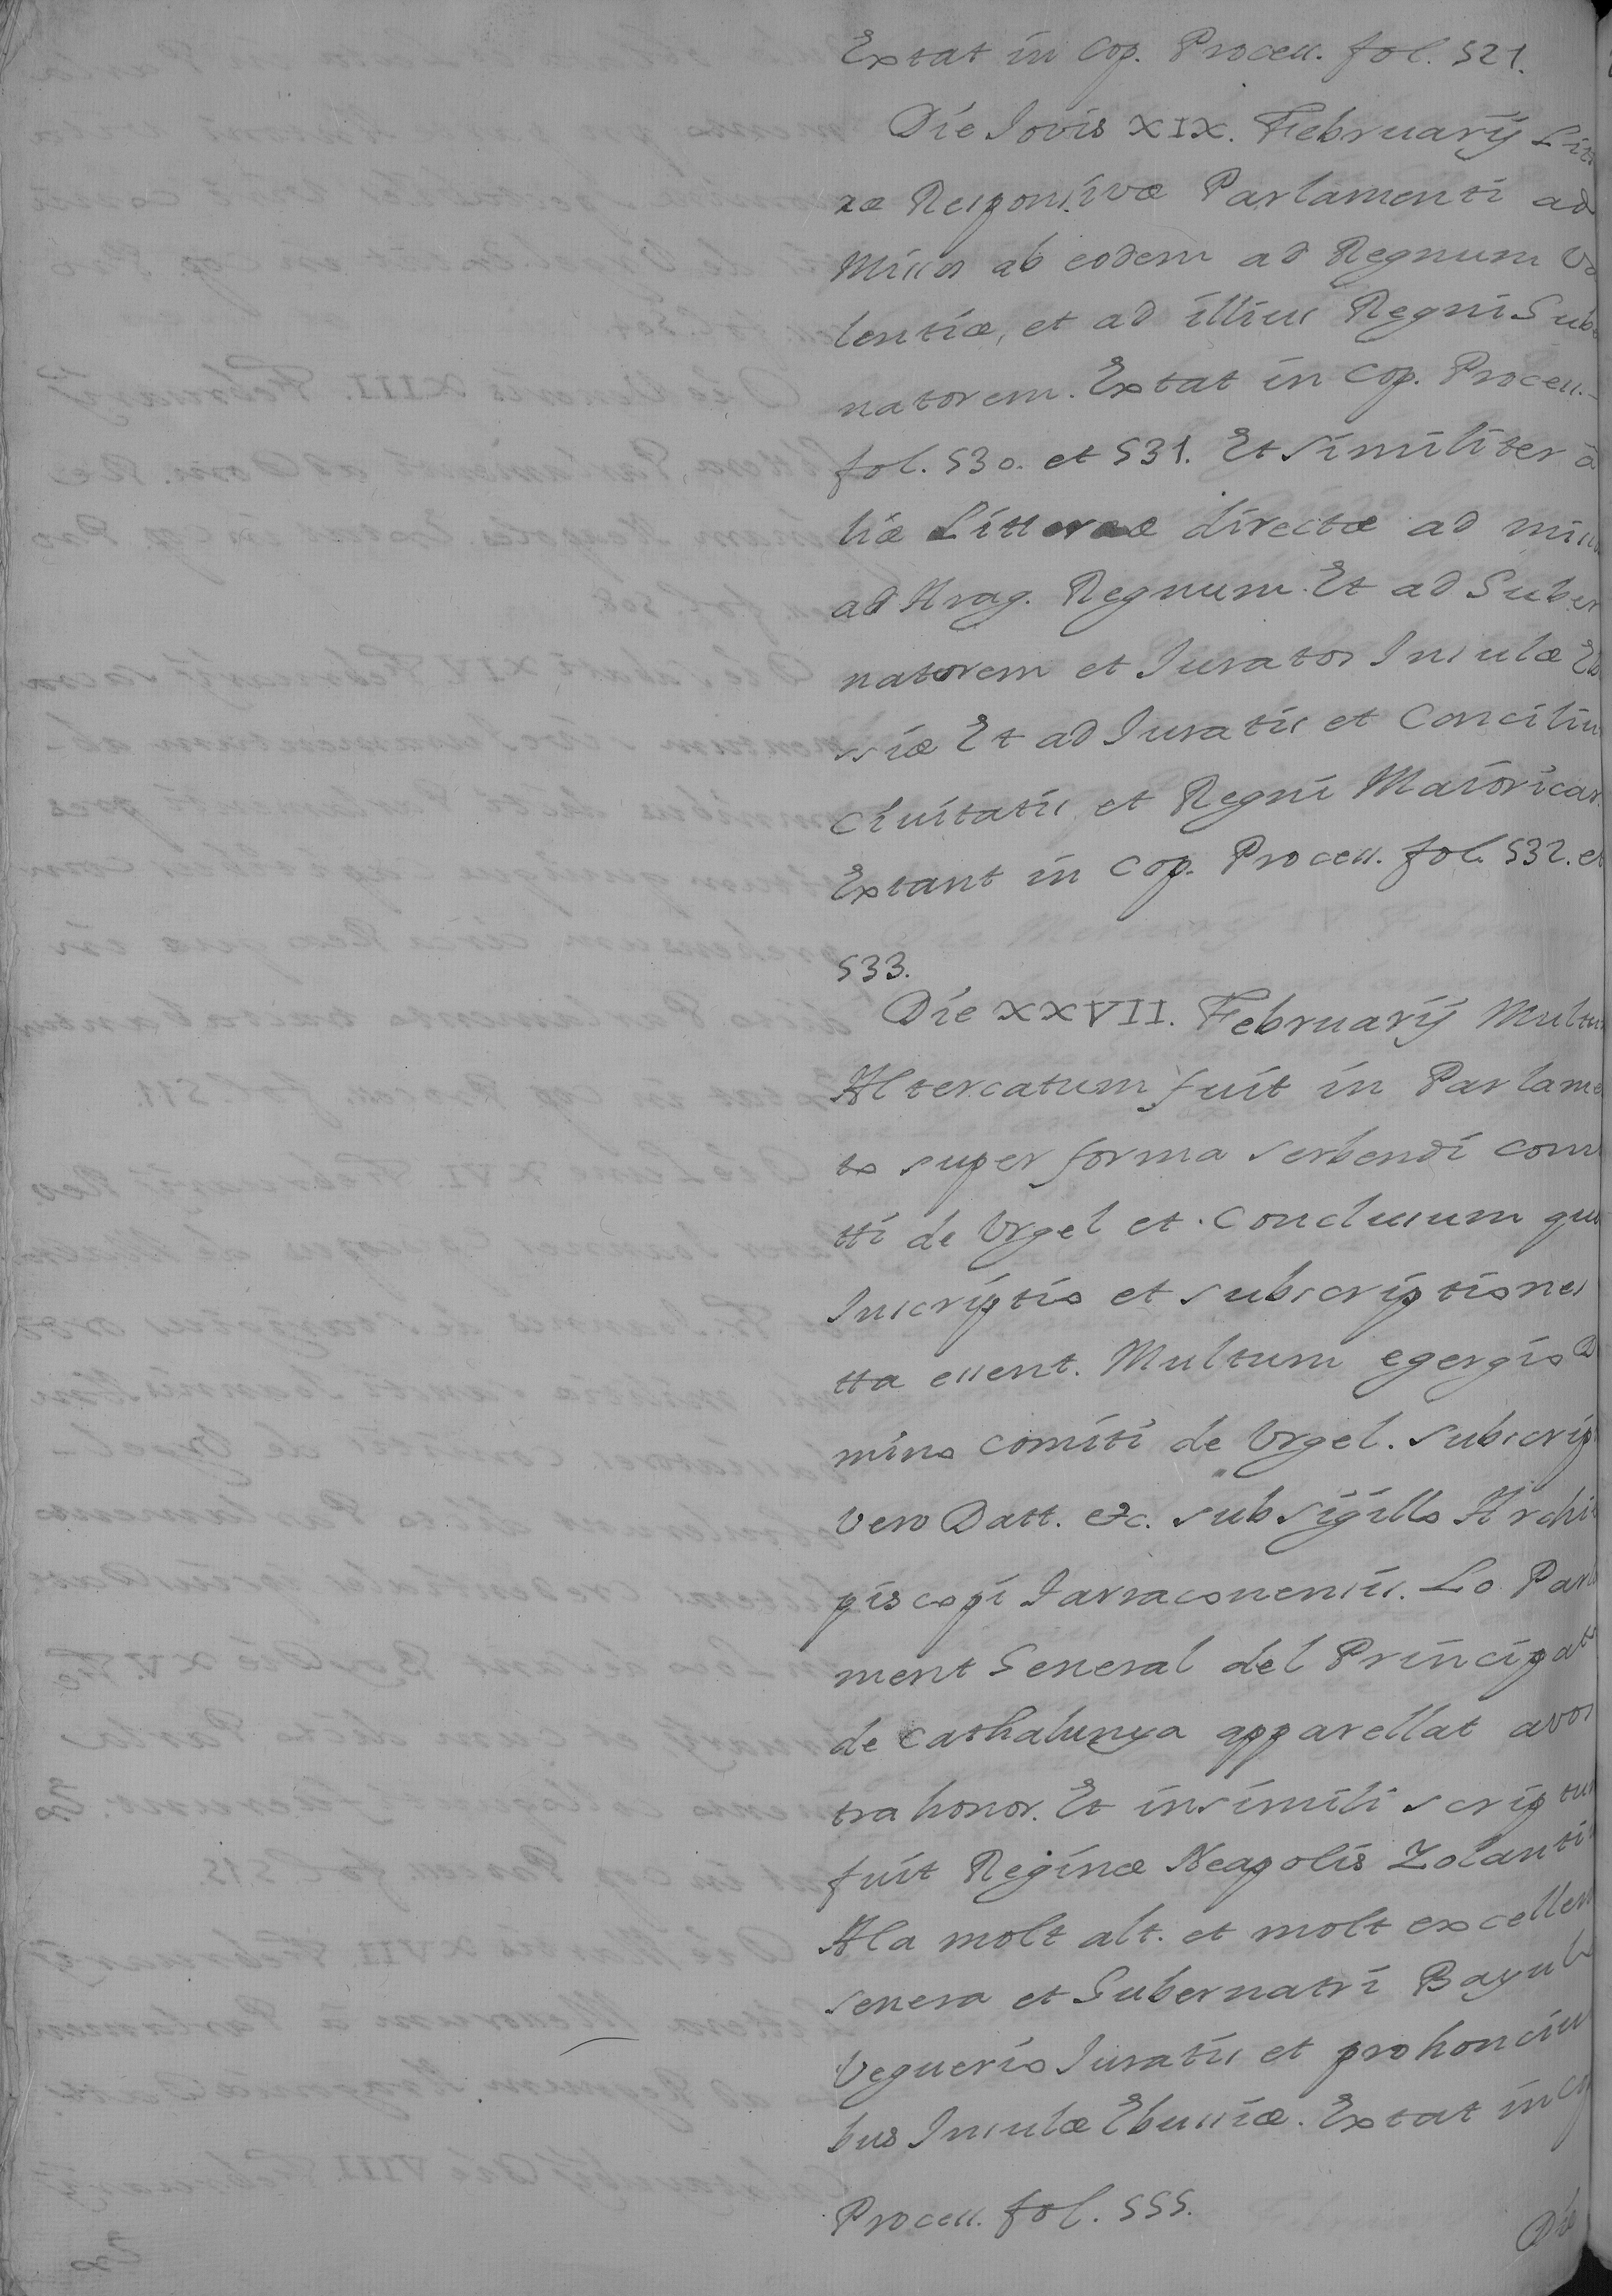 Extat in Cop. Process. fol. 521.
Die Jovis XIX. Februarij Litt
ræ Responsivæ Parlamenti ad
Missos ab eodem ad Regnum Va
lentiæ, et ad illius Regni Gube
natorem. Extat in Cop. Process.
fol. 530. et 531. Et Similiter a
liæ Litteræ directæ ad miss
ad Arag. Regnum. Et ad Guber
natorem et Juratos Insulæ Eb
ssiæ Et ad Juratis et Conciliu
Civitatis et Regni Maioricar.
Extant in Cop. Process. fol. 532. et
533.
Die XXVII. Februarij Multu
Altercatum fuit in Parlame
to super forma scrbendi comi
tti de Urgel et Conclusum qu
Inscriptio et subscriptiones
tta essent. Multum egergio D
mino comiti de Urgel. subscrip
vero Datt. etc. sub sigillo Archi
piscopi Tarraconensis. Lo Parla
ment General del Principat
de Cathalunya apparellat avos
tra honor. Et in simili scriptu
fuit Reginæ Neapolis Yolanti
Ala molt alt. et molt excellen
senera et Gubernatri Bayul
Veguerio Juratis et prohonciu
bus Insulæ Ebussiæ. Extat in Cop
Process. fol. 555.
Die